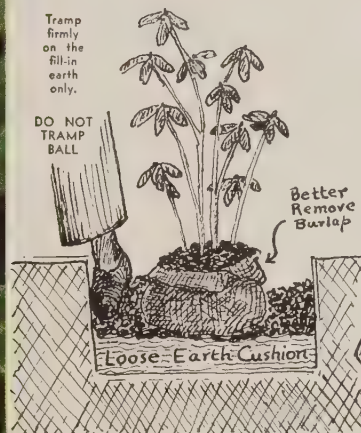 Tramp
firmly
on the
fill-in
earth
only.
DO NOT
TRAMP
BALL
Better
Remove
Burlap
Loose Earth Cushion